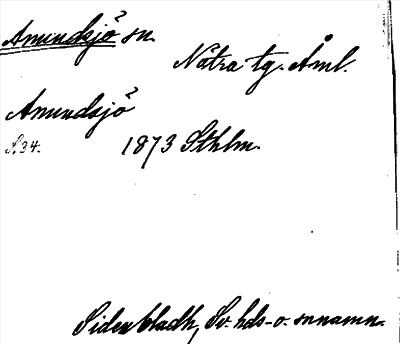 Amundsjö sn.
Nätra tg. Ång.
Amundsjö
S. 34. 1873 Sthlm.
Sidenbladh, Sv. hds- o. snnamn.